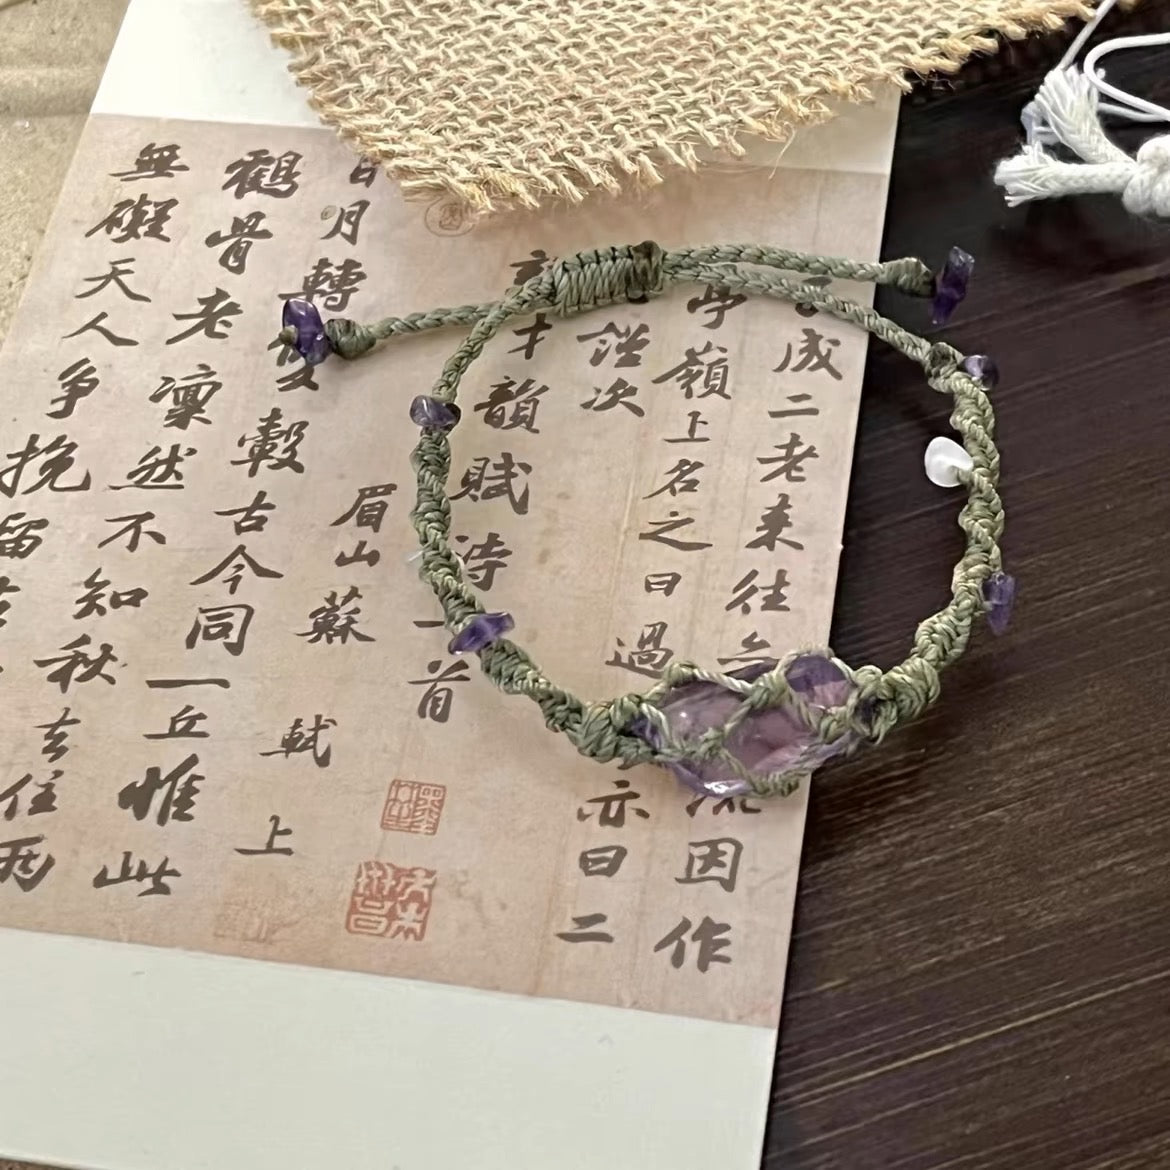 成二老来往亦
因作
亭嶺上名之曰過
亦曰二
謹次
才韻賦詩一首
眉山蘇軾上
日月轉雙轂古今同一丘惟此
鶴骨老凜然不知秋去住兩
無礙天人爭挽留